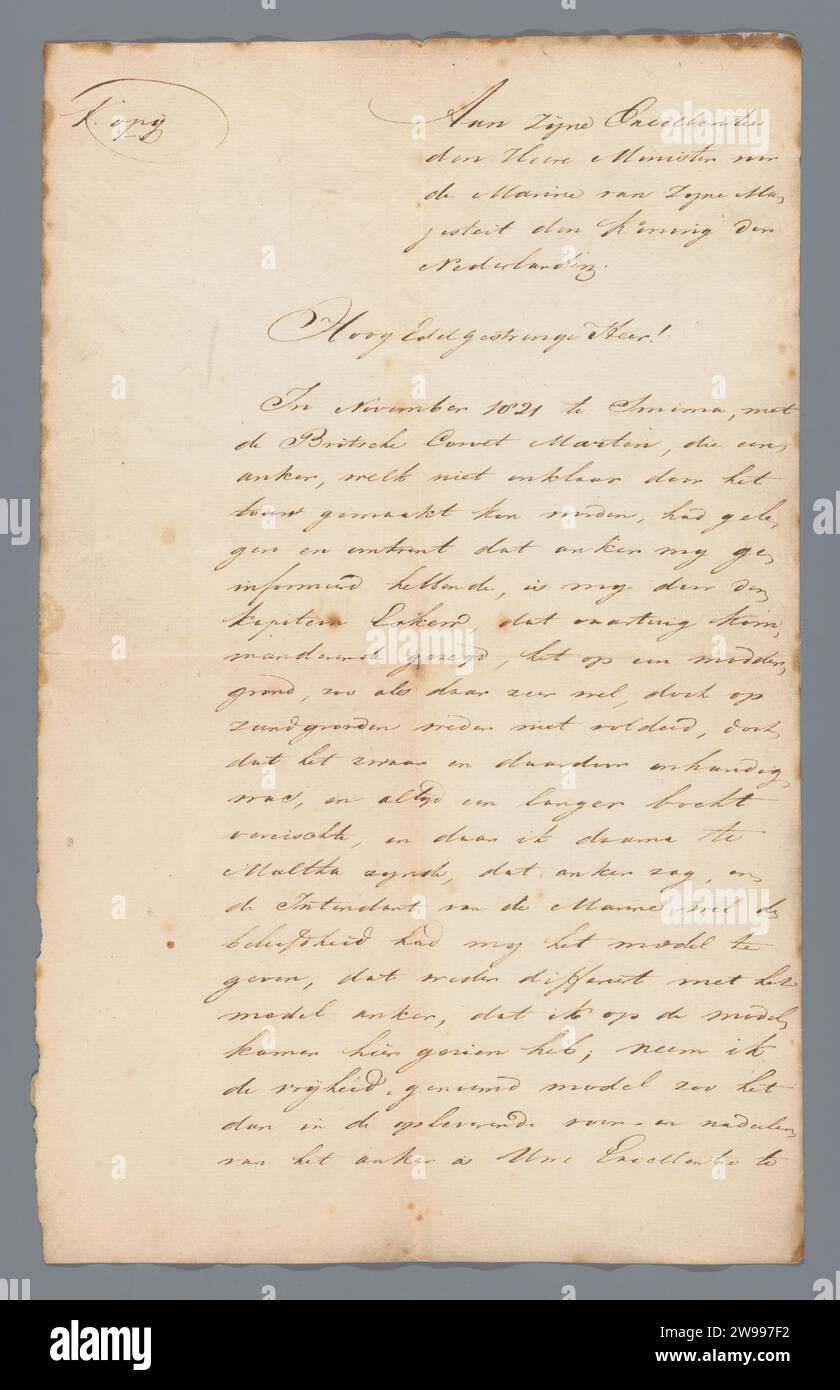 Kopij
Aan Zijne Excellentie
den Heere Minister voor
de Marine van Zijne Ma,
jesteit den Koning der
Nederlanden.
Hoog Edelgestrenge Heer!
In November 1821 te Smirna, met
de Britsche Corvet Martin, die een,
anker, welk niet onklaar door het
touw gemaakt kon worden, had gele,
gen en omtrent dat anker my ge,
informeerd hebbende, is my door den,
Kapitein dat vaartuig kom,
mandeerende gezegd, het op een modder,
grond, zoo als daar zeer wel, doch op
zandgronden weder niet voldeed, doch,
dat het zwaar en daardoor onhandig,
was, en altyd een langer bocht
vereischte, en daar ik daarna te
Maltha zynde, dat anker zag, en,
de Intendant van de Marine wel de,
beleefdheid had my het model te
geven, dat weder differeert met het
model anker, dat ik op de model,
kamer hier gezien heb; neem ik
de vrijheid, genoemd model zoo het
dan in de opleverende voor- en nadeelen,
van het anker is Uwe Excellentie te
alamy
a
a
a
a
a
a
a
a
alamy
Image ID: 2W997F2
www.alamy.com